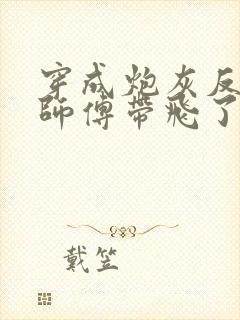 穿成炮灰反
師傅帶飛了
戴笠